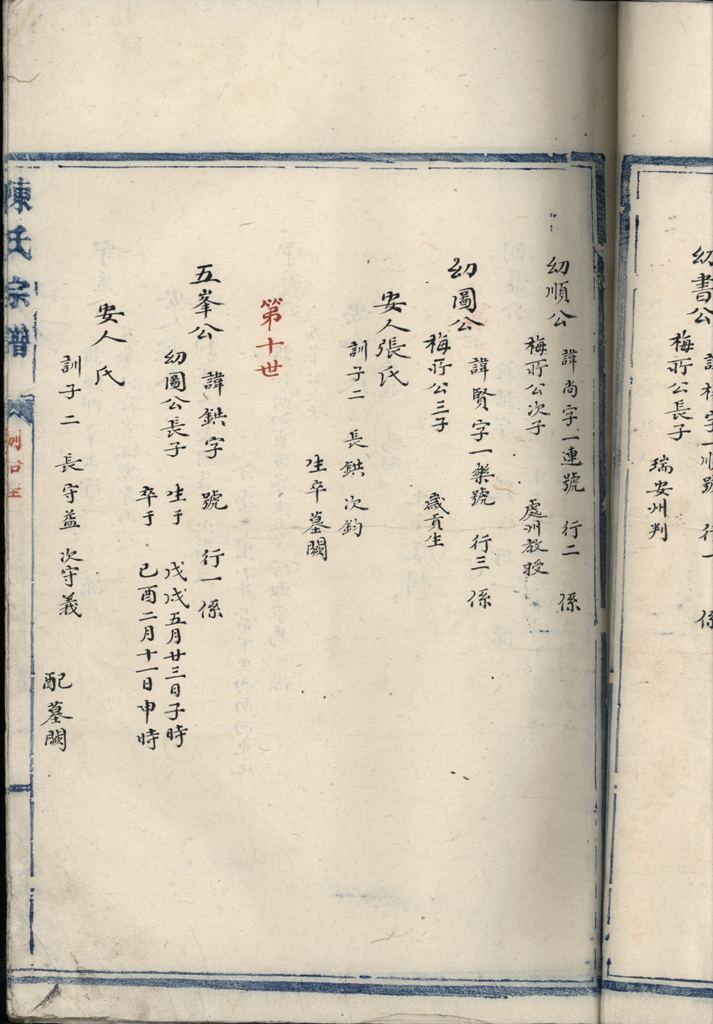 幻書公
梅所公長子
瑞安州判
幻順公 諱尚字一連號 行二 係
梅所公次子 處州教授
幻圖公 諱賢字一樂號 行三 係
梅所公三子 歲貢生
安人張氏
訓子二 長鉷 次鈞
生卒墓闕
第十世
五峯公 諱鉷字 號 行一 係
幻圖公長子 生于 戊戌五月廿三日子時
卒于 己酉二月十一日申時
安人 氏
訓子二 長守益 次守義
配墓闕
陳氏宗譜